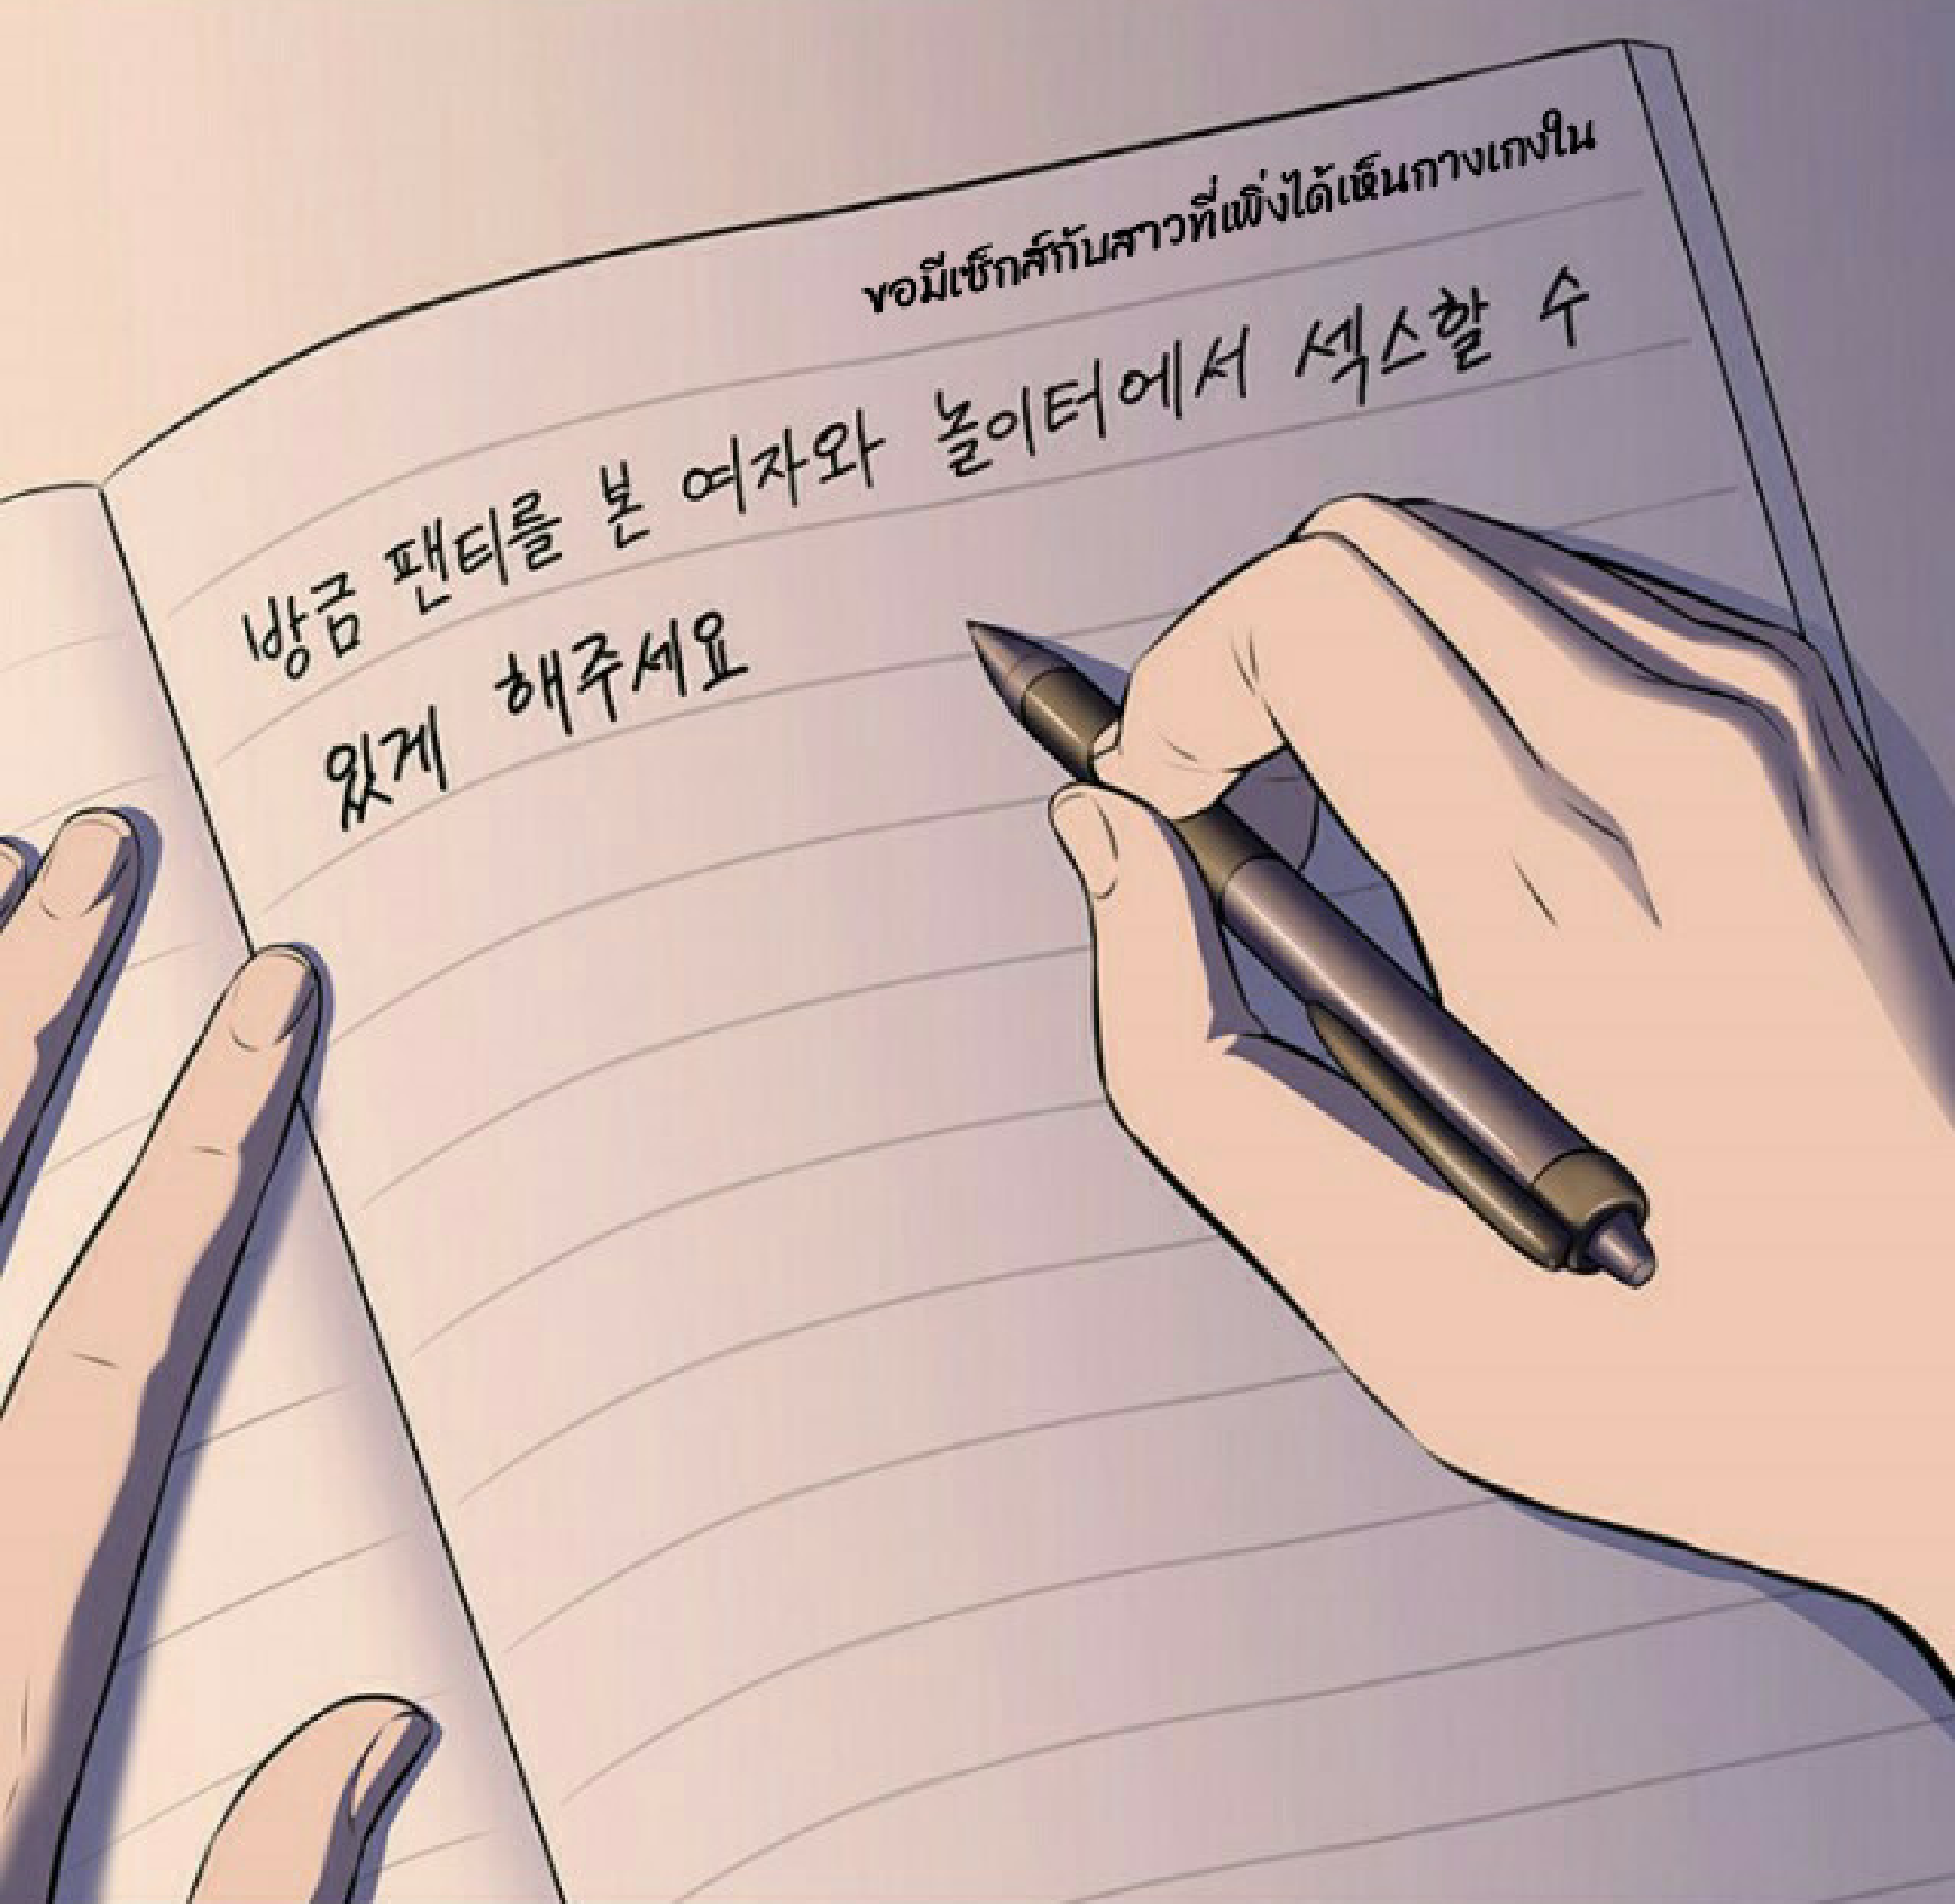 ขอมีเซ็กส์กับสาวที่เพิ่งได้เห็นกางเกงใน
방금 팬티를 본 여자와 놀이터에서 섹스할 수
있게 해주세요